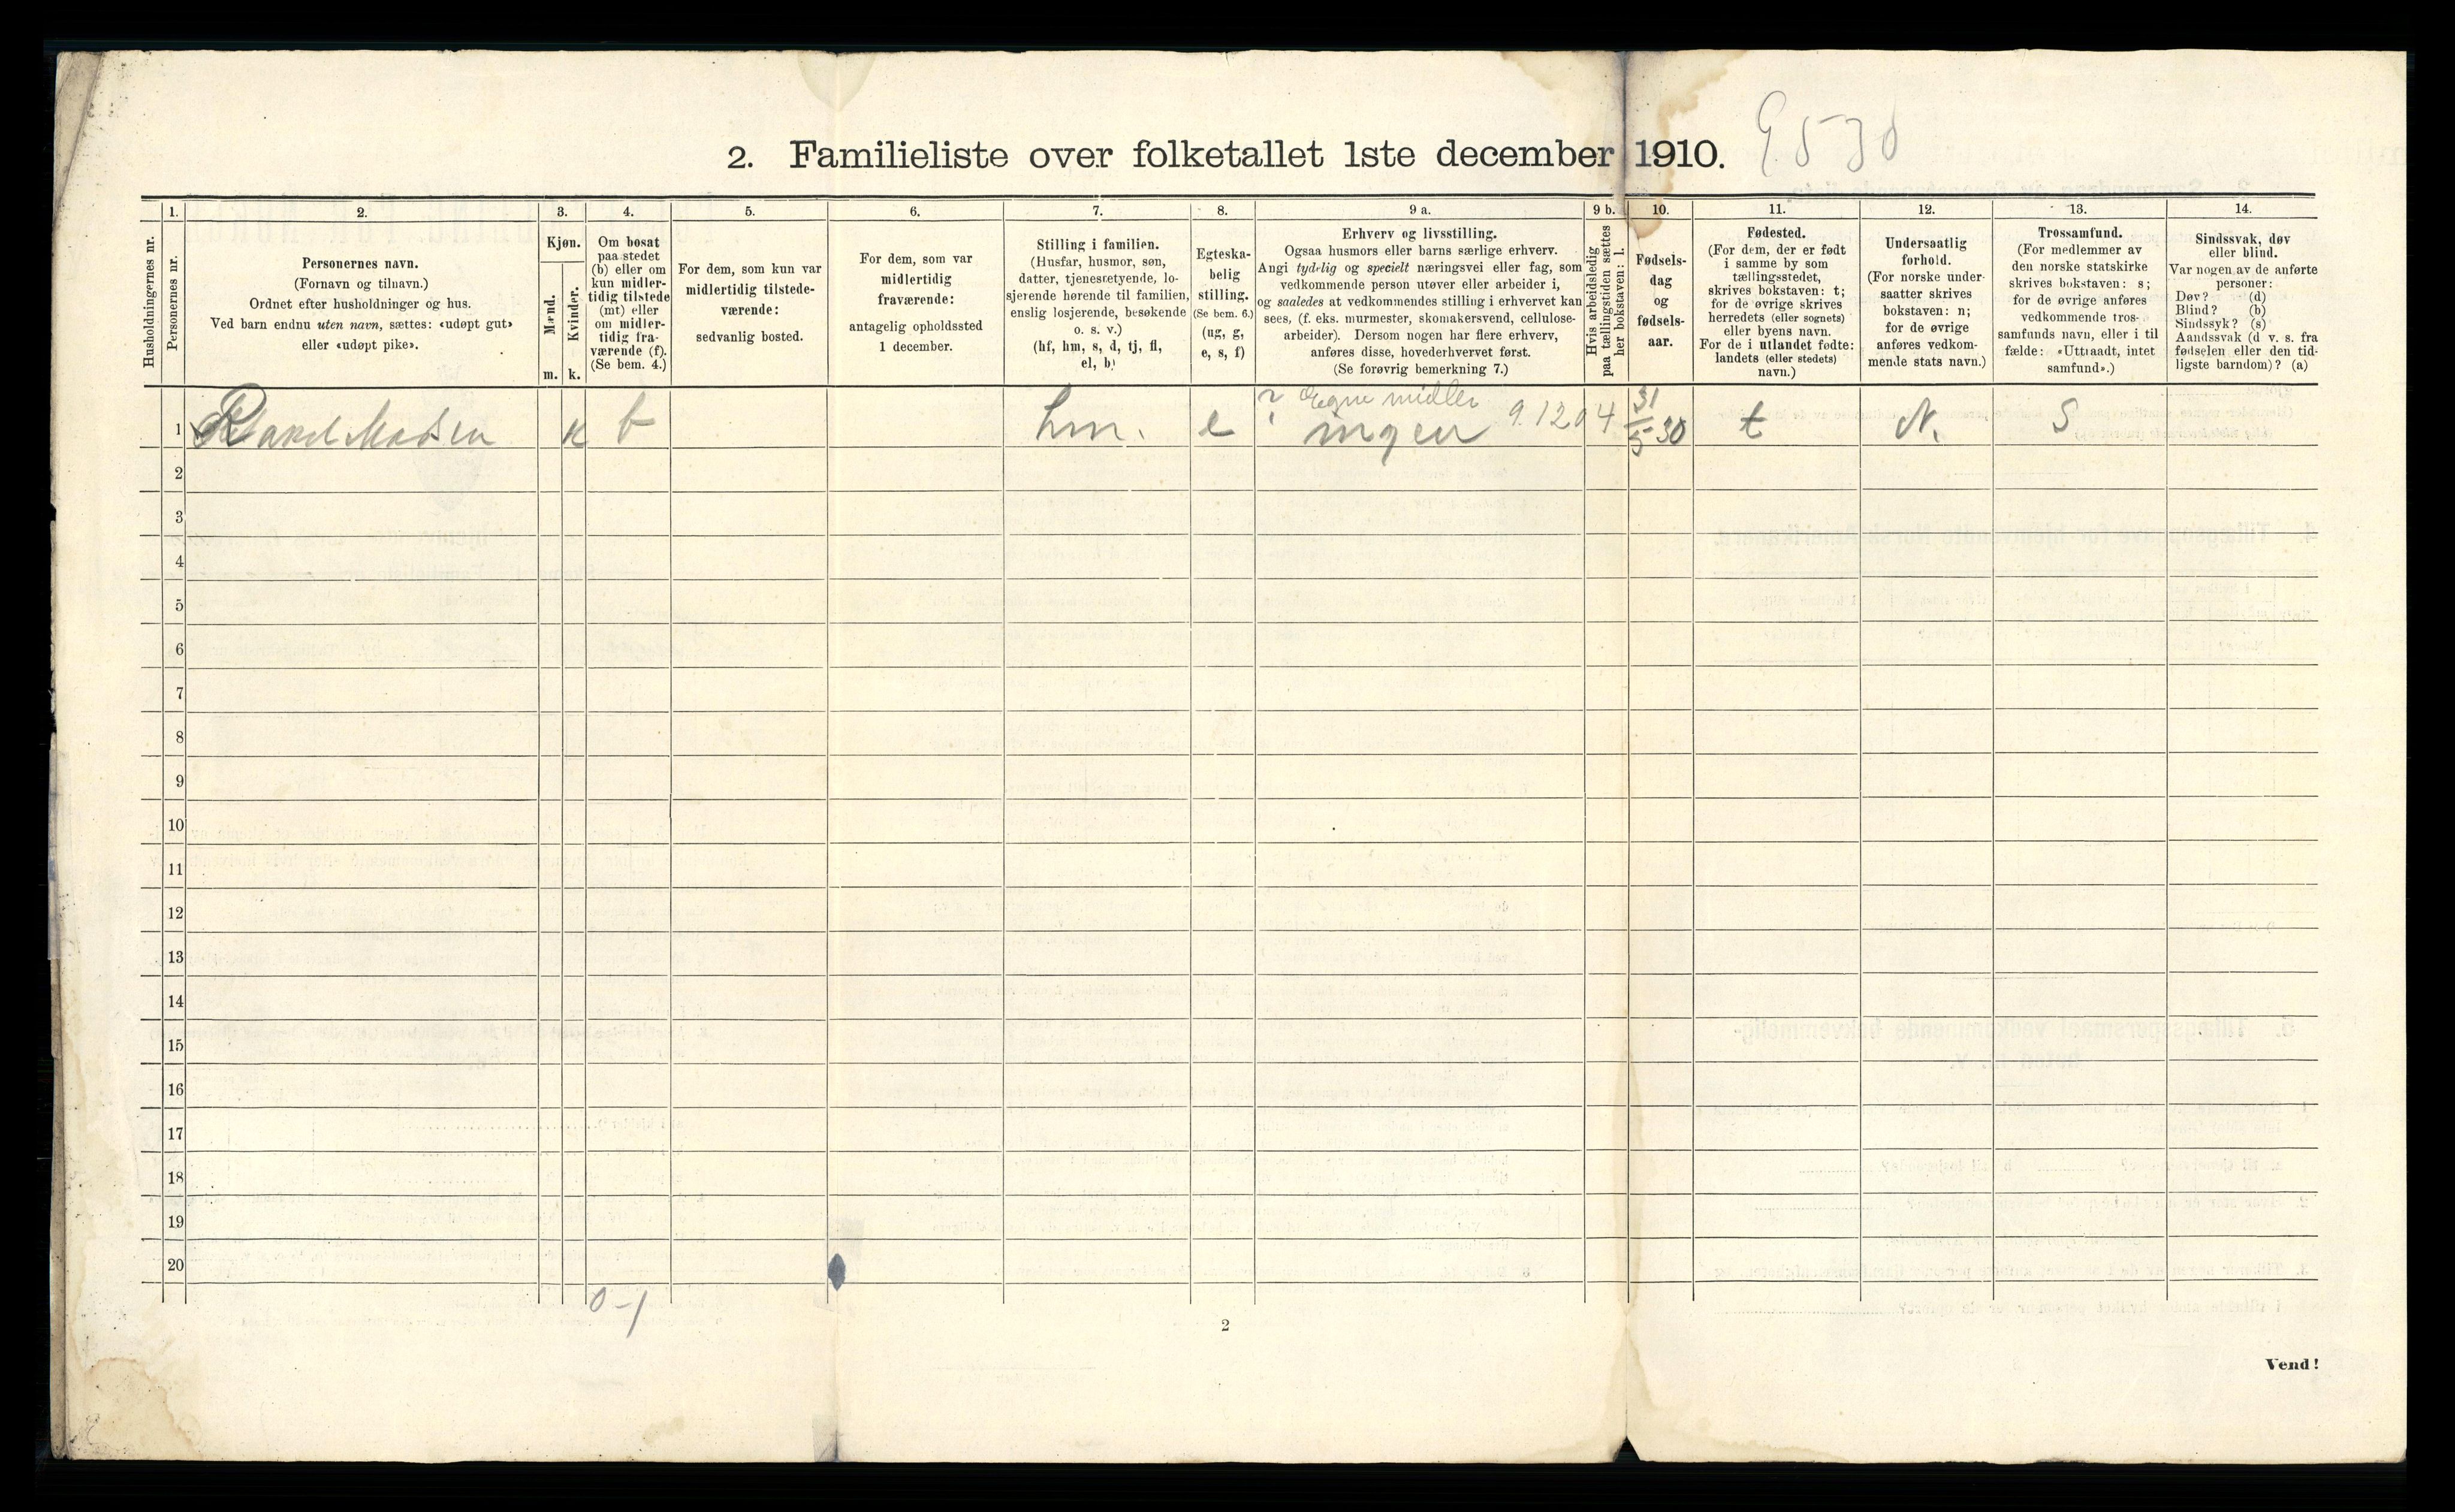 2. Familieliste over folketallet 1ste december 1910.
1. 2. 3. 4. 5. 6. 7. 8. 9 a. 9 b. 10. 11. 12. 13. 14.
Husholdningernes nr.
Personernes nr.
Personernes navn.
(Fornavn og tilnavn.)
Ordnet efter husholdninger og hus.
Ved barn endnu uten navn, sættes: «udøpt gut»
eller «udøpt pike».
Kjøn.
Mænd.
Kvinder.
m. k.
Om bosat
paa stedet
(b) eller om
kun midler-
tidig tilstede
(mt) eller
om midler-
tidig fra-
værende (f).
(Se bem. 4.)
For dem, som kun var
midlertidig tilstede-
værende:
sedvanlig bosted.
For dem, som var
midlertidig
fraværende:
antagelig opholdssted
1 december.
Stilling i familien.
(Husfar, husmor, søn,
datter, tjenestetyende, lo-
sjerende hørende til familien,
enslig losjerende, besøkende
o. s. v.)
(hf, hm, s, d, tj, fl,
el, b)
Egteska-
belig
stilling.
(Se bem. 6.)
(ug, g,
e, s, f)
Erhverv og livsstilling.
Ogsaa husmors eller barns særlige erhverv.
Angi tydelig og specielt næringsvei eller fag, som
vedkommende person utøver eller arbeider i,
og saaledes at vedkommendes stilling i erhvervet kan
sees, (f. eks. murmester, skomakersvend, cellulose-
arbeider). Dersom nogen har flere erhverv,
anføres disse, hovederhvervet først.
(Se forøvrig bemerkning 7.)
Hvis arbeidsledig
paa tællingstiden sættes
her bokstaven: l.
Fødsels-
dag
og
fødsels-
aar.
Fødested.
(For dem, der er født
i samme by som
tællingsstedet,
skrives bokstaven: t;
for de øvrige skrives
herredets (eller sognets)
eller byens navn.
For de i utlandet fødte:
landets (eller stedets)
navn.)
Undersaatlig
forhold.
(For norske under-
saatter skrives
bokstaven: n;
for de øvrige
anføres vedkom-
mende stats navn.)
Trossamfund.
(For medlemmer av
den norske statskirke
skrives bokstaven: s;
for de øvrige anføres
vedkommende tros-
samfunds navn, eller i til
fælde: «Uttraadt, intet
samfund».)
Sindssvak, døv
eller blind.
Var nogen av de anførte
personer:
Døv? (d)
Blind? (b)
Sindssyk? (s)
Aandssvak (d v. s. fra
fødselen eller den tid-
ligste barndom)? (a)
? Egne midler
1 Madsen k b hm. e ingen 9.1204 31/5 30 t N. S
2
3
4
5
6
7
8
9
10
11
12
13
14
15
16
17
18
19
20
0-1
2
Vend!